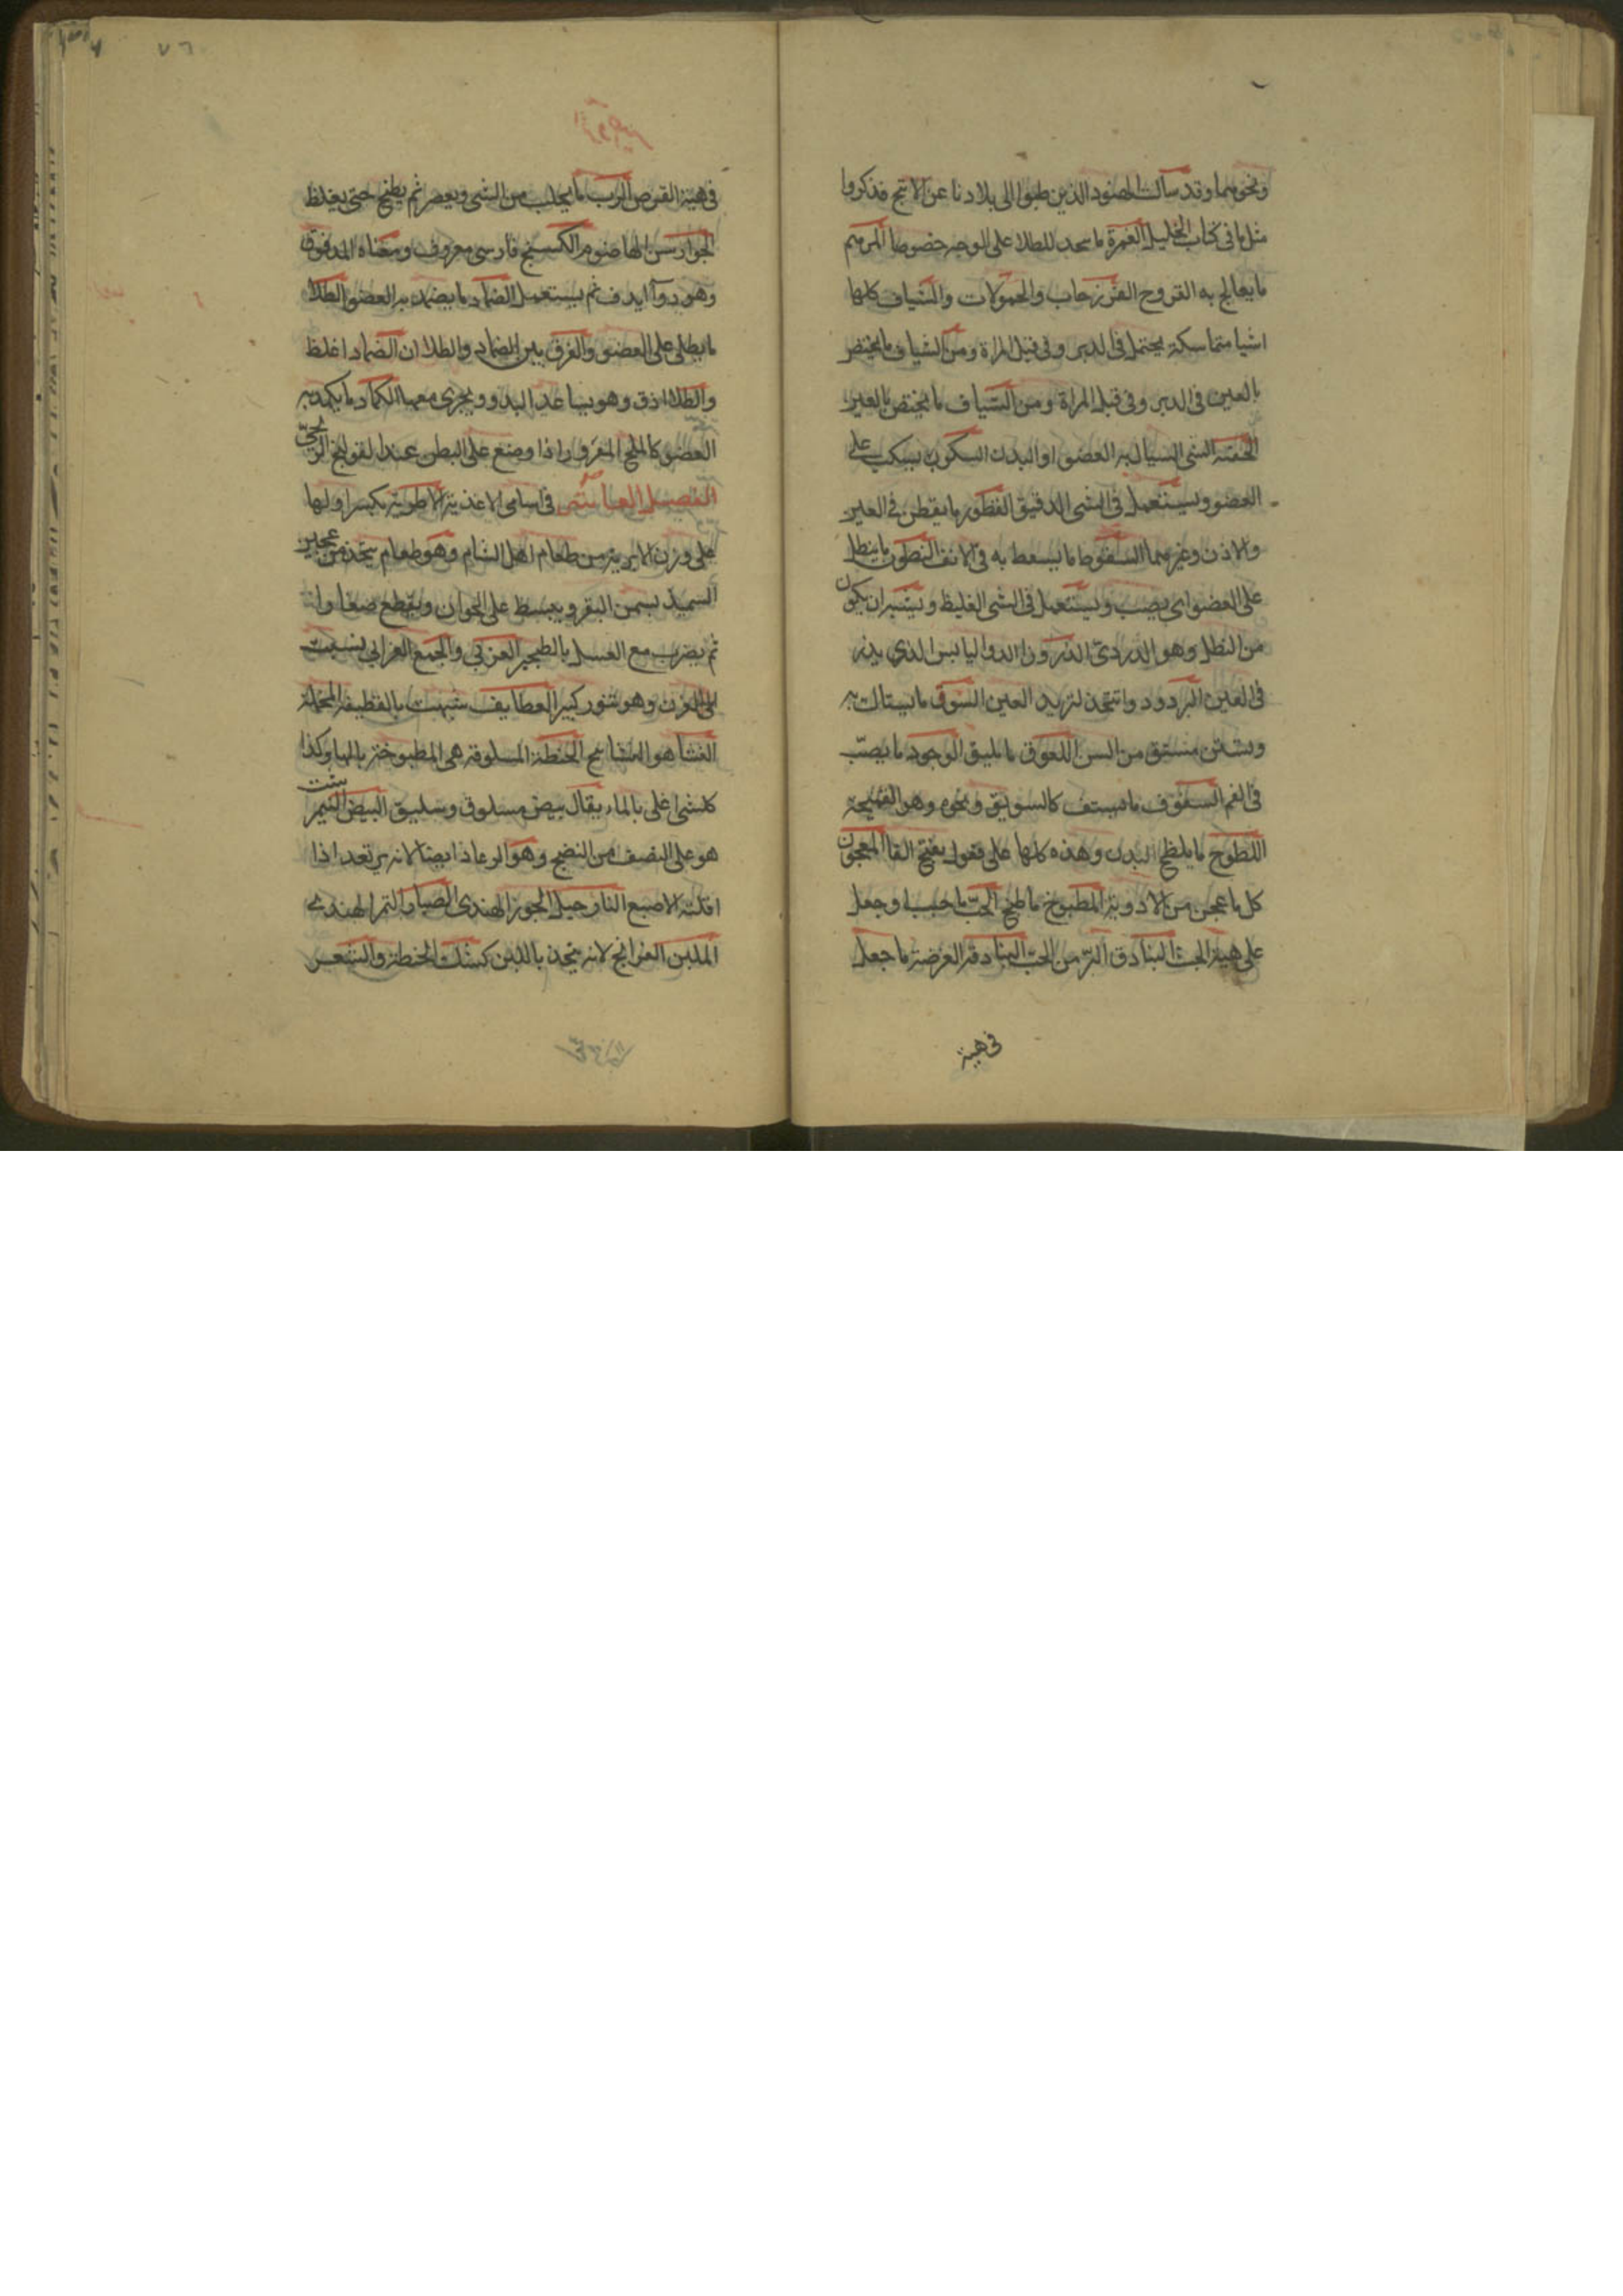 ونحوهما وقد سالت الهنود الذين طبوا الى بلادنا عن الانبج فذكروا
مثل ما في كتاب الخليل الغمرة ما للطلا على الوجه خصوصا المرهم
ما يعالج به القروح الفرزجات والحمولات والشياف كلها
اشيا متماسكة يحتمل في الدبر وفي قبل المراة ومن الشياف ما يختص
بالعين في الدبر وفي قبل المراة ومن الشياف ما يختص بالعين
الحقنة الشى السيال به العضو او البدن السكوب يسكب على
العضو ويستعمل في الشى الدقيق القطور ما يقطر في العين
والاذن وغيرهما السعوط ما يسعط به في الانف النطول ما ينطل
على العضو اى يصب ويستعمل في الشى الغليظ ويشبه ان يكون
من النطل وهو الدردى الذرور الدوا اليابس الذي يذر
في العين البرود دوا يتخذ لتبريد العين السنون ما يستاك به
ويستن مشتق من السن اللعوق ما يلعق الوجور ما يصب
في الفم السفوف ما يستف كالسويق ونحوه وهو القميحة
اللطوخ ما يلطخ البدن وهذه كلها على فعول بفتح الفا المعجون
كل ما عجن من الادوية المطبوخ ما طبخ الحب ما حبب وجعل
على هية الحب البنادق اكبر من الحب البنادقة القرصة ما جعل
في هية
في هية القرص الرب ما يحلب من الشى ويعصر ثم يطبخ حتى يغلظ
الجوارسن الهاضوم الكسنج فارسى معروف ومعناه المدقوق
وهو دوآ يدق ثم يستعمل الضماد ما يضمد به العضو الطلا
ما يطلى على العضو والفرق بين الضماد والطلا ان الضماد اغلظ
والطلا ادق وهو يساعد اليد ويجرى معها الكماد ما يكمد به
العضو كالملح المغرور اذا وضع على البطن عند القولنج الريحى
الفصل العاشر في اسامى الاغذية الاطرية بكسر اولها
على وزن الابرية من طعام اهل الشام وهو طعام يتخذ من عجين
السميذ بسمن البقر ويبسط على الخوان ويقطع صغارا
ثم يضرب مع العسل بالطنجير الفرني والجمع الفراني نسبت
الى الفرن وهو تنور كبير القطايف شبهت بالقطيفة المخملة
النشا هو النشاستج الحنطة المسلوقة هى المطبوخة بالما وكذا
كل شى اغلى بالماء يقال بيض مسلوق وسليق البيض النيمبرشت
هو على النصف من النضج وهو الرعاد ايضا لانه يرتعد اذا
اقلته الاصبع النارجيل الجوز الهندى الصبار التمر الهندى
الملبن الفرانج لانه يتخذ باللبن كشك الحنطة والشعير